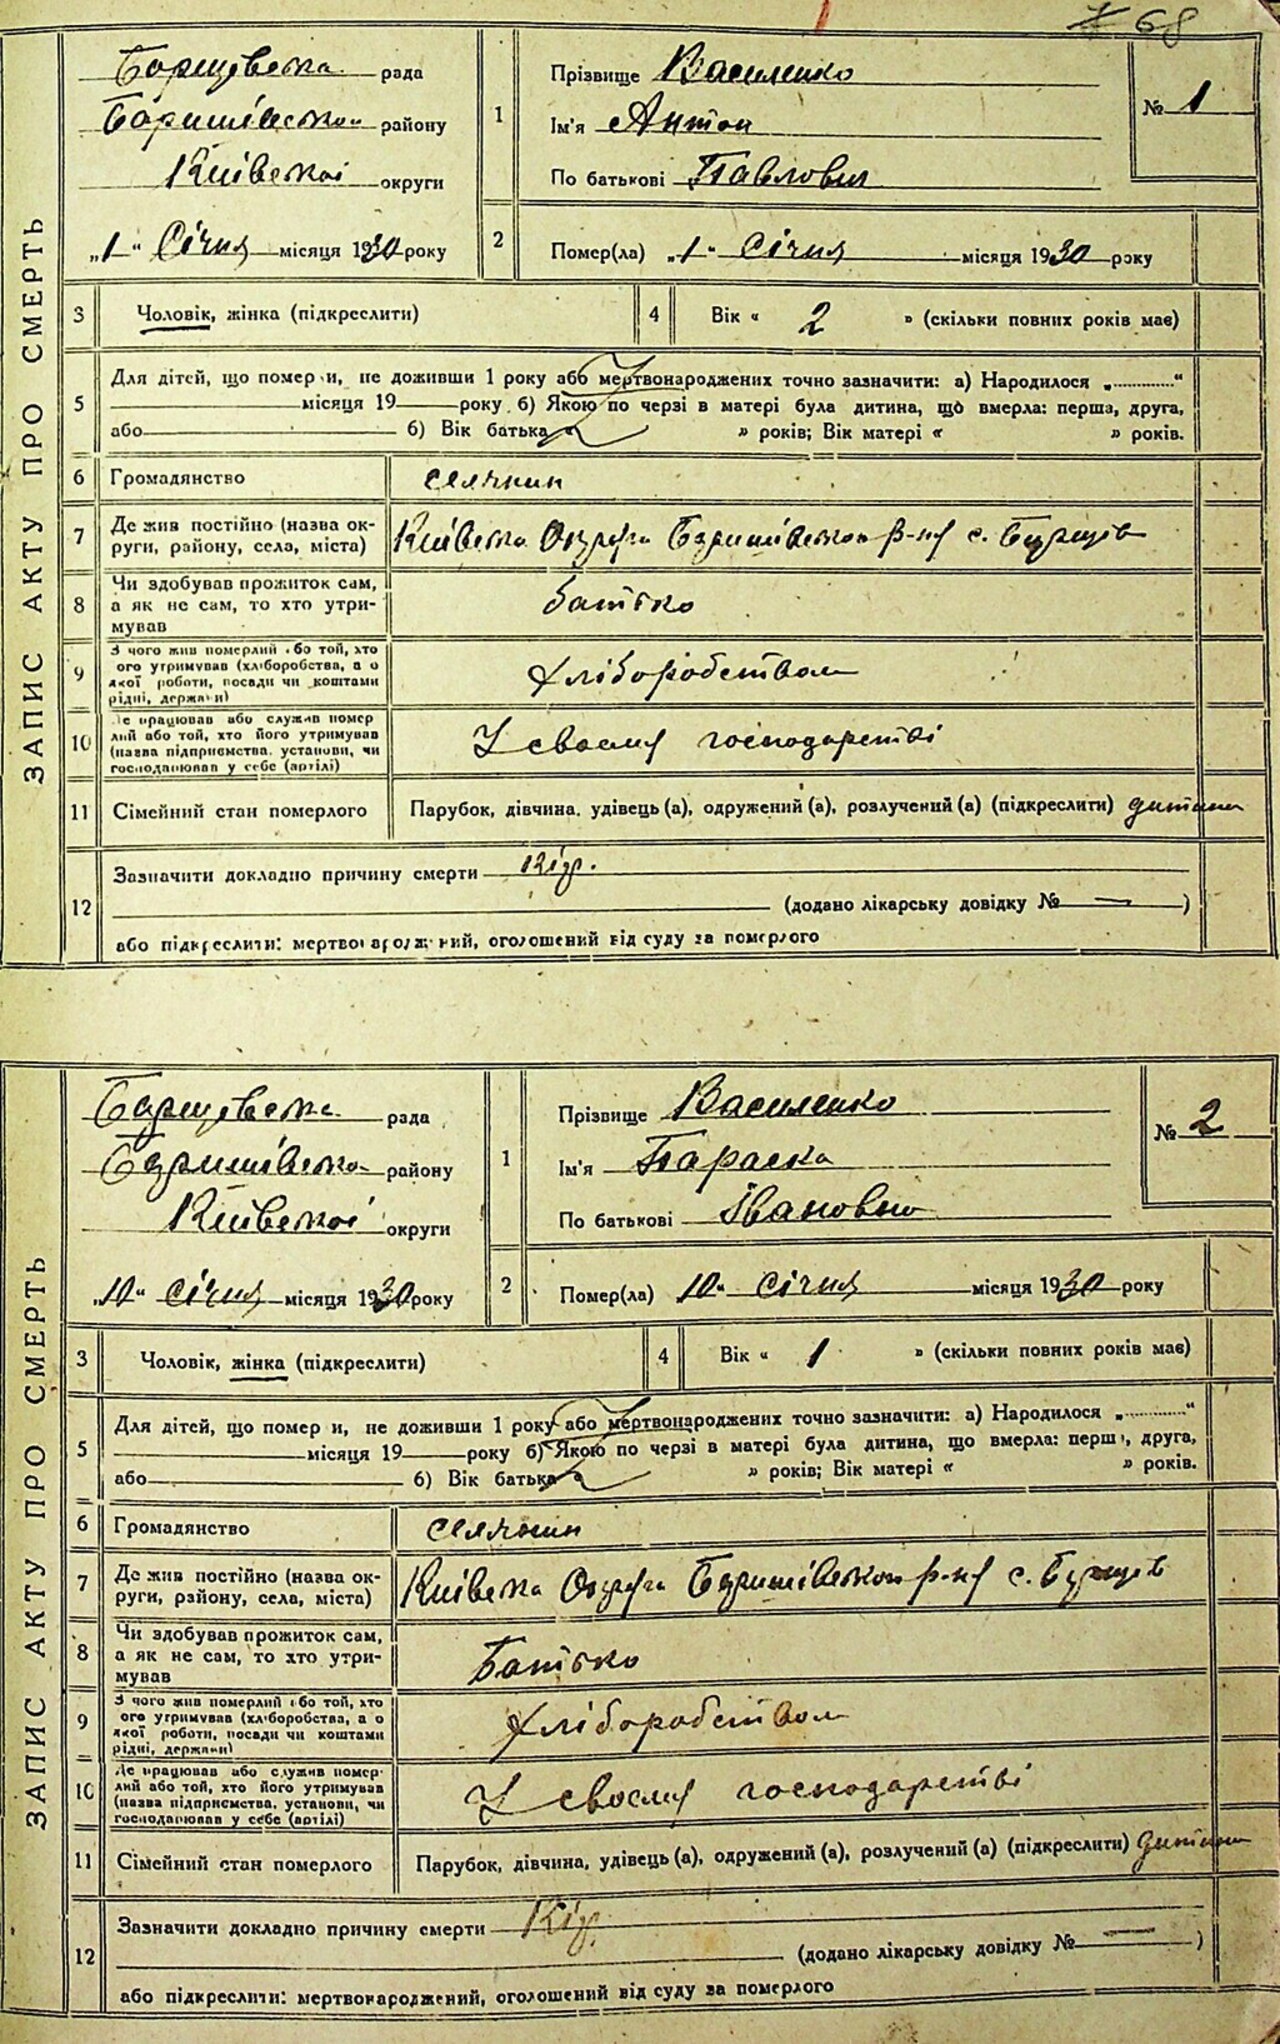 68
ЗАПИС АКТУ ПРО СМЕРТЬ
Борщевська рада
Баришівськои району
Київської округи
„1“ Січня місяця 1930 року
1
Прізвище Василенко
Ім'я Антон
По батькові Павлович
№ 1
2
Помер(ла) „1“ Січня місяця 1930 року
3 Чоловік, жінка (підкреслити)
4 Вік « 2 » (скільки повних років має)
5
Для дітей, що помер и, не доживши 1 року або мертвонароджених точно зазначити: а) Народилося „.............“
місяця 19 року б) Якою по черзі в матері була дитина, що вмерла: перша, друга,
або б) Вік батька « » років; Вік матері « » років.
6 Громадянство селянин
7
Де жив постійно (назва ок-
руги, району, села, міста) Київська Округа Баришівськои р-ну с. Борщів
8
Чи здобував прожиток сам,
а як не сам, то хто утри-
мував
батько
9
З чого жив померлий або той, хто
ого утримував (хліборобства, а о
якої роботи, посади чи коштами
рідні, держави)
Хліборобством
10
Де працював або служив помер
лий або той, хто його утримував
(назва підприємства, установи, чи
господарював у себе (артілі)
У своему господарстві
11 Сімейний стан померлого Парубок, дівчина, удівець(а), одружений(а), розлучений(а) (підкреслити) дитина
12
Зазначити докладно причину смерти Кір.
(додано лікарську довідку № — )
або підкреслити: мертвонароджений, оголошений від суду за померлого
ЗАПИС АКТУ ПРО СМЕРТЬ
Борщевська рада
Баришівська району
Київської округи
„10“ січня місяця 1930 року
1
Прізвище Василенко
Ім'я Параска
По батькові Івановно
№ 2
2
Помер(ла) 10“ Січня місяця 1930 року
3 Чоловік, жінка (підкреслити)
4 Вік « 1 » (скільки повних років має)
5
Для дітей, що помер и, не доживши 1 року або мертвонароджених точно зазначити: а) Народилося „.............“
місяця 19 року б) Якою по черзі в матері була дитина, що вмерла: перш, друга,
або б) Вік батька « » років; Вік матері « » років.
6 Громадянство селянин
7
Де жив постійно (назва ок-
руги, району, села, міста) Київська Округа Баришівськои р-ну с. Борщів
8
Чи здобував прожиток сам,
а як не сам, то хто утри-
мував
Батько
9
З чого жив померлий або той, хто
ого утримував (хліборобства, а о
якої роботи, посади чи коштами
рідні, держави)
Хліборобством
10
Де працював або служив помер-
лий або той, хто його утримував
(назва підприємства, установи, чи
господарював у себе (артілі)
У своему господарстві
11 Сімейний стан померлого Парубок, дівчина, удівець(а), одружений(а), розлучений(а) (підкреслити) дитина
12
Зазначити докладно причину смерти Кір.
(додано лікарську довідку № — )
або підкреслити: мертвонароджений, оголошений від суду за померлого